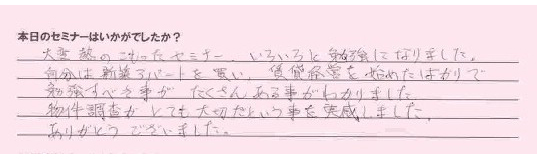 本日のセミナーはいかがでしたか？
大変熱のこもったセミナー いろいろと勉強になりました。
自分は新築アパートを買い、賃貸経営を始めたばかりで
勉強すべき事が たくさんある事がわかりました
物件調査がとても大切だという事を実感しました。
ありがとうございました。